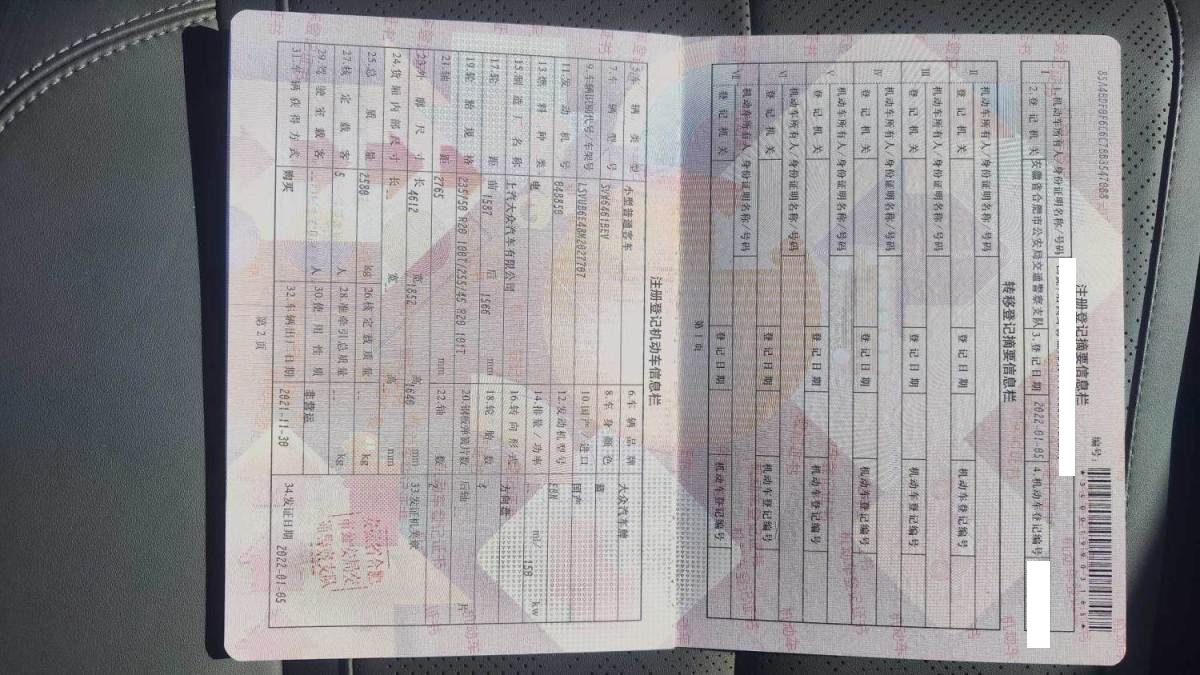 注册登记摘要信息栏
编号:
Ⅰ 1.机动车所有人/身份证明名称/号码
2.登记机关 安徽省合肥市公安局交通警察支队 3.登记日期 2022-01-05 4.机动车登记编号
转移登记摘要信息栏
Ⅱ 机动车所有人/身份证明名称/号码
登记机关 登记日期 机动车登记编号
Ⅲ 机动车所有人/身份证明名称/号码
登记机关 登记日期 机动车登记编号
Ⅳ 机动车所有人/身份证明名称/号码
登记机关 登记日期 机动车登记编号
Ⅴ 机动车所有人/身份证明名称/号码
登记机关 登记日期 机动车登记编号
Ⅵ 机动车所有人/身份证明名称/号码
登记机关 登记日期 机动车登记编号
Ⅶ 机动车所有人/身份证明名称/号码
登记机关 登记日期 机动车登记编号
注册登记机动车信息栏
5.车辆类型 小型普通客车 6.车辆品牌 大众汽车牌
7.车辆型号 SVW6461BEV 8.车身颜色 蓝
9.车辆识别代号/车架号 LSVUB6E48M2027707 10.国产/进口 国产
11.发动机号 048859 12.发动机型号 EBN
13.燃料种类 电 14.排量/功率 ml/ 150 kw
15.制造厂名称 上汽大众汽车有限公司 16.转向形式 方向盘
17.轮距 前 1587 后 1566 mm 18.轮胎数 4
19.轮胎规格 235/50 R20 100T/255/45 R20 101T 20.钢板弹簧片数 后轴 片
21.轴距 2765 mm 22.轴数 2
23.外廓尺寸 长 4612 宽 1852 高 1640 mm 33.发证机关章
24.货厢内部尺寸 长 宽 高 mm
25.总质量 2580 kg 26.核定载质量 kg
27.核定载客 5 人 28.准牵引总质量 kg
29.驾驶室载客 人 30.使用性质 非营运
31.车辆获得方式 购买 32.车辆出厂日期 2021-11-30 34.发证日期 2022-01-05
第 2 页